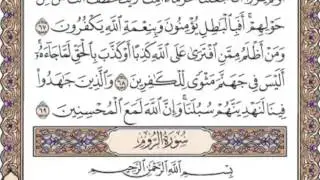 حَوْلِهِمْ ۚ أَفَبِٱلْبَٰطِلِ يُؤْمِنُونَ وَبِنِعْمَةِ ٱللَّهِ يَكْفُرُونَ ٦٧
وَمَنْ أَظْلَمُ مِمَّنِ ٱفْتَرَىٰ عَلَى ٱللَّهِ كَذِبًا أَوْ كَذَّبَ بِٱلْحَقِّ لَمَّا جَآءَهُۥٓ ۚ
أَلَيْسَ فِى جَهَنَّمَ مَثْوًى لِّلْكَٰفِرِينَ ٦٨ وَٱلَّذِينَ جَٰهَدُوا۟
فِينَا لَنَهْدِيَنَّهُمْ سُبُلَنَا ۚ وَإِنَّ ٱللَّهَ لَمَعَ ٱلْمُحْسِنِينَ ٦٩
سُورَةُ الرُّومِ
بِسْمِ ٱللَّهِ ٱلرَّحْمَٰنِ ٱلرَّحِيمِ